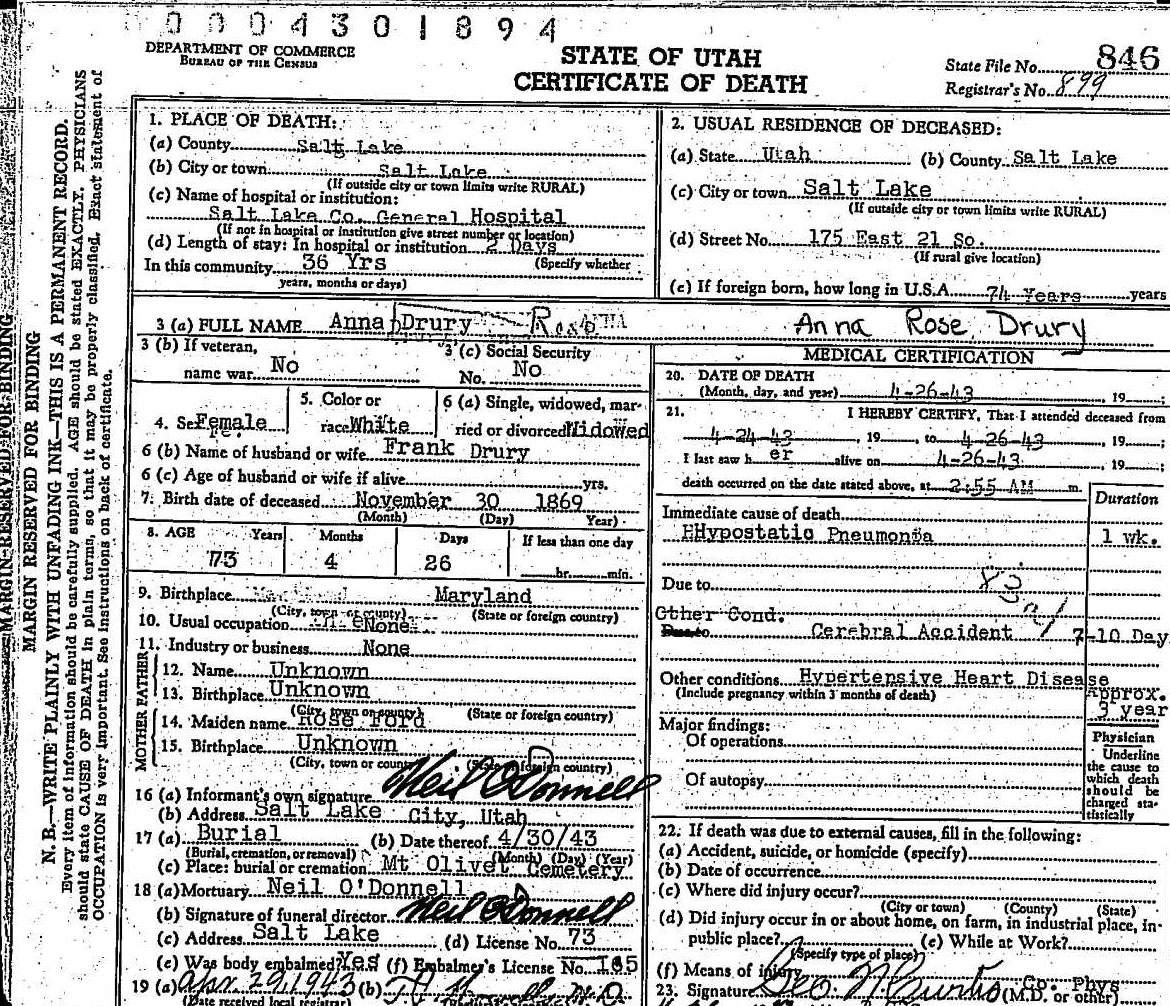 0004301894
DEPARTMENT OF COMMERCE
BUREAU OF THE CENSUS
STATE OF UTAH
CERTIFICATE OF DEATH
State File No. 846
Registrar's No. 899
MARGIN RESERVED FOR BINDING
MARGIN RESERVED FOR BINDING
N. B.—WRITE PLAINLY WITH UNFADING INK—THIS IS A PERMANENT RECORD.
Every item of information should be carefully supplied. AGE should be stated EXACTLY. PHYSICIANS
should state CAUSE OF DEATH in plain terms, so that it may be properly classified. Exact statement of
OCCUPATION is very important. See instructions on back of certificate.
1. PLACE OF DEATH:
(a) County Salt Lake
(b) City or town Salt Lake
(If outside city or town limits write RURAL)
(c) Name of hospital or institution:
Salt Lake Co. General Hospital
(If not in hospital or institution give street number or location)
(d) Length of stay: In hospital or institution 2 Days
In this community 36 Yrs (Specify whether
years, months or days)
2. USUAL RESIDENCE OF DECEASED:
(a) State Utah (b) County Salt Lake
(c) City or town Salt Lake
(If outside city or town limits write RURAL)
(d) Street No. 175 East 21 So.
(If rural give location)
(e) If foreign born, how long in U.S.A. 74 Years years
3 (a) FULL NAME Anna Drury Rose Anna Rose Drury
3 (b) If veteran,
name war No
3 (c) Social Security
No. No
4. Sex Female
5. Color or
race White
6 (a) Single, widowed, mar-
ried or divorced Widowed
6 (b) Name of husband or wife Frank Drury
6 (c) Age of husband or wife if alive yrs.
7. Birth date of deceased November 30 1869
(Month) (Day) Year)
8. AGE Years Months Days If less than one day
73 4 26 hr. min.
9. Birthplace Maryland
(City, town or county) (State or foreign country)
10. Usual occupation None
11. Industry or business None
FATHER
12. Name Unknown
13. Birthplace Unknown
(City, town or county) (State or foreign country)
MOTHER
14. Maiden name Rose Ford
15. Birthplace Unknown
(City, town or county) (State or foreign country)
16 (a) Informant's own signature Neil O'Donnell
(b) Address Salt Lake City, Utah
17 (a) Burial (b) Date thereof 4/30/43
(Burial, cremation, or removal) (Month) (Day) (Year)
(c) Place: burial or cremation Mt Olivet Cemetery
18 (a) Mortuary Neil O'Donnell
(b) Signature of funeral director Neil O'Donnell
(c) Address Salt Lake (d) License No. 73
(e) Was body embalmed Yes (f) Embalmer's License No. 165
19 (a) Apr 29, 1943 (b)
(Date received local registrar)
MEDICAL CERTIFICATION
20. DATE OF DEATH
(Month, day, and year) 4-26-43 , 19 ;
21. I HEREBY CERTIFY, That I attended deceased from
4-24-43 , 19 , to 4-26-43 , 19 ;
I last saw h er alive on 4-26-43 , 19 ;
death occurred on the date stated above, at 2:55 AM m.
Duration
Immediate cause of death
Hypostatic Pneumonia 1 wk.
Due to
Other Cond.
Due to Cerebral Accident 7-10 Day
Other conditions Hypertensive Heart Disease
(Include pregnancy within 3 months of death) Approx.
3 year
Major findings:
Of operations
Of autopsy
Physician
Underline
the cause to
which death
should be
charged sta-
tistically
22. If death was due to external causes, fill in the following:
(a) Accident, suicide, or homicide (specify)
(b) Date of occurrence
(c) Where did injury occur?
(City or town) (County) (State)
(d) Did injury occur in or about home, on farm, in industrial place, in-
public place? (e) While at Work?
(Specify type of place)
(f) Means of injury
23. Signature Co. Phys
(M.D. or other)